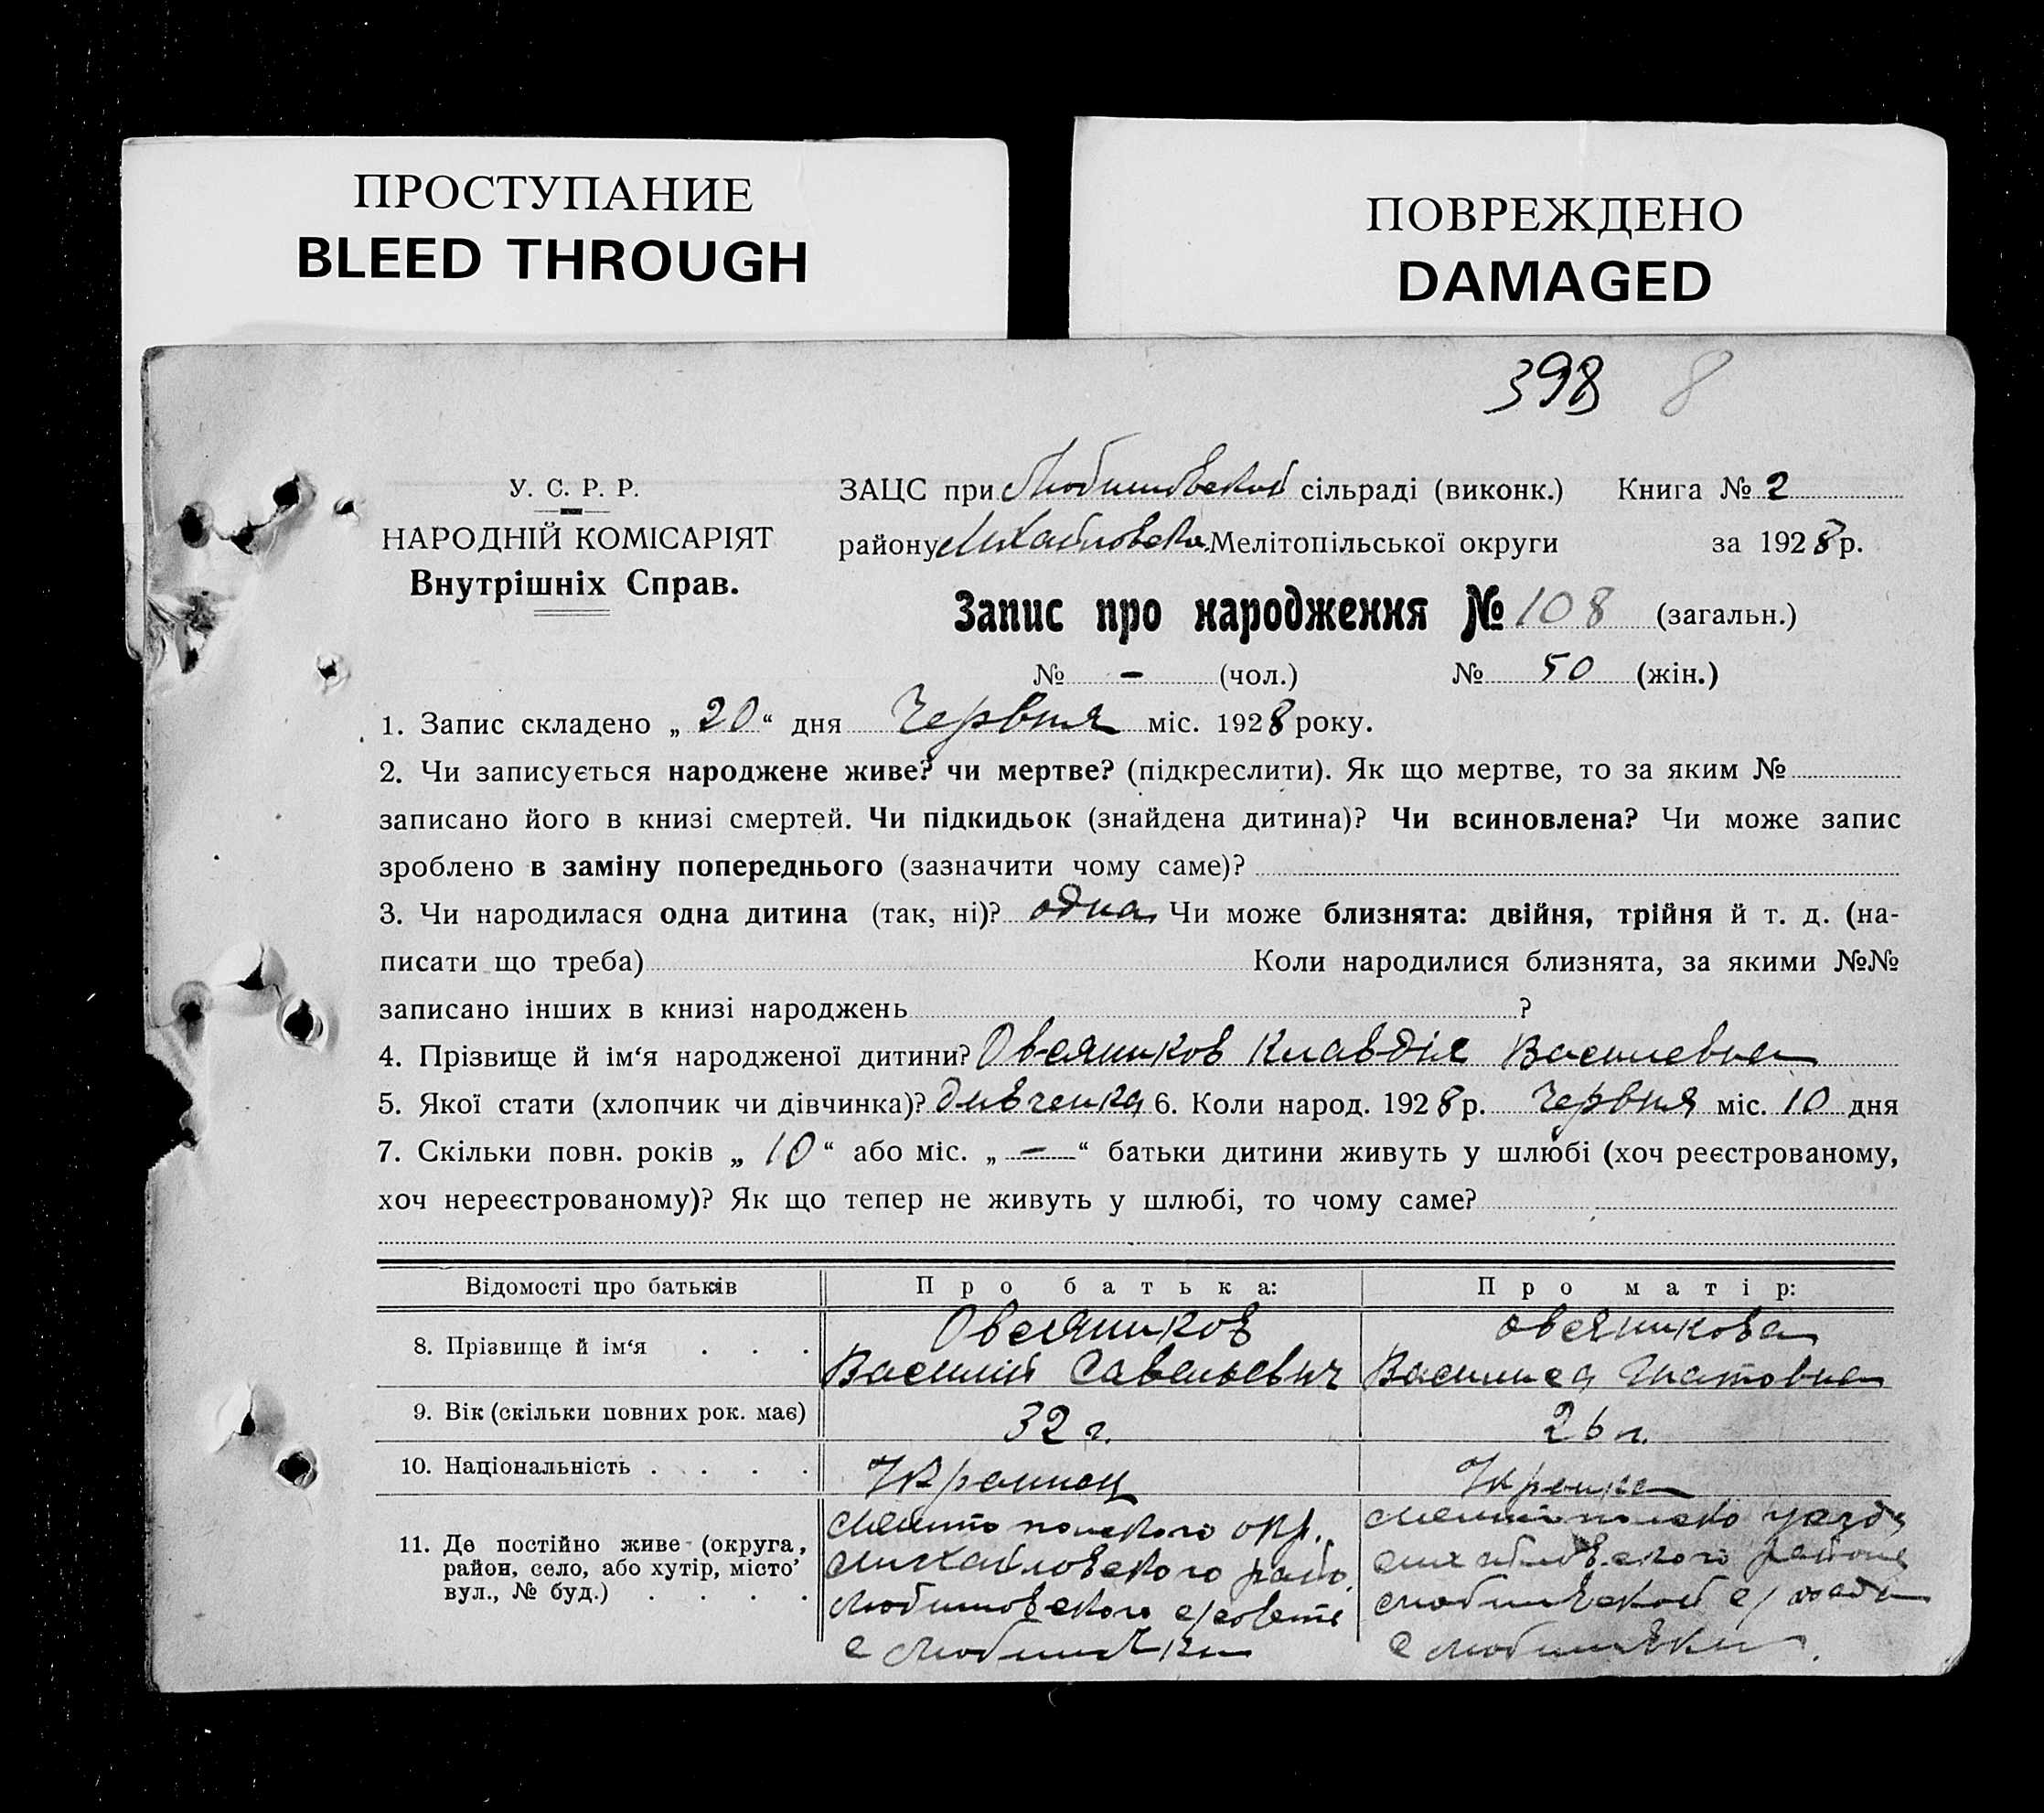 ПРОСТУПАНИЕ
BLEED THROUGH
ПОВРЕЖДЕНО
DAMAGED
398 8
У. С. Р. Р.
НАРОДНІЙ КОМІСАРІЯТ
Внутрішніх Справ.
ЗАЦС при Любимовской сільраді (виконк.) Книга № 2
району Михайловск. Мелітопільської округи за 1928 р.
Запис про народження № 108 (загальн.)
№ - (чол.) № 50 (жін.)
1. Запис складено „ 20 “ дня Червня міс. 1928 року.
2. Чи записується народжене живе? чи мертве? (підкреслити). Як що мертве, то за яким №
записано його в книзі смертей. Чи підкидьок (знайдена дитина)? Чи всиновлена? Чи може запис
зроблено в заміну попереднього (зазначити чому саме)?
3. Чи народилася одна дитина (так, ні)? одна Чи може близнята: двійня, трійня й т. д. (на-
писати що треба) Коли народилися близнята, за якими №№
записано інших в книзі народжень ?
4. Прізвище й ім‘я народженої дитини? Овсяников Клавдія Василевна
5. Якої стати (хлопчик чи дівчинка)? дивченка 6. Коли народ. 1928 р. Червня міс. 10 дня
7. Скільки повн. років „ 10 “ або міс. „ - “ батьки дитини живуть у шлюбі (хоч реєстрованому,
хоч нереєстрованому)? Як що тепер не живуть у шлюбі, то чому саме?
Відомості про батьків Про батька: Про матір:
8. Прізвище й ім‘я . . . Овсяников Овсяникова
Василий Савельевич Василиса Игнатовна
9. Вік (скільки повних рок. має) 32 г. 26 г.
10. Національність . . . . Украинец Украинка
11. Де постійно живе (округа,
район, село, або хутір, місто’
вул., № буд.) . . . .
Мелитопольского окр.
Михайловского райо.
Любимовского с/совета
с Любимовки
Мелитопольско уезда
Михайловского района
Любимовской с/ради
с Любимовки.